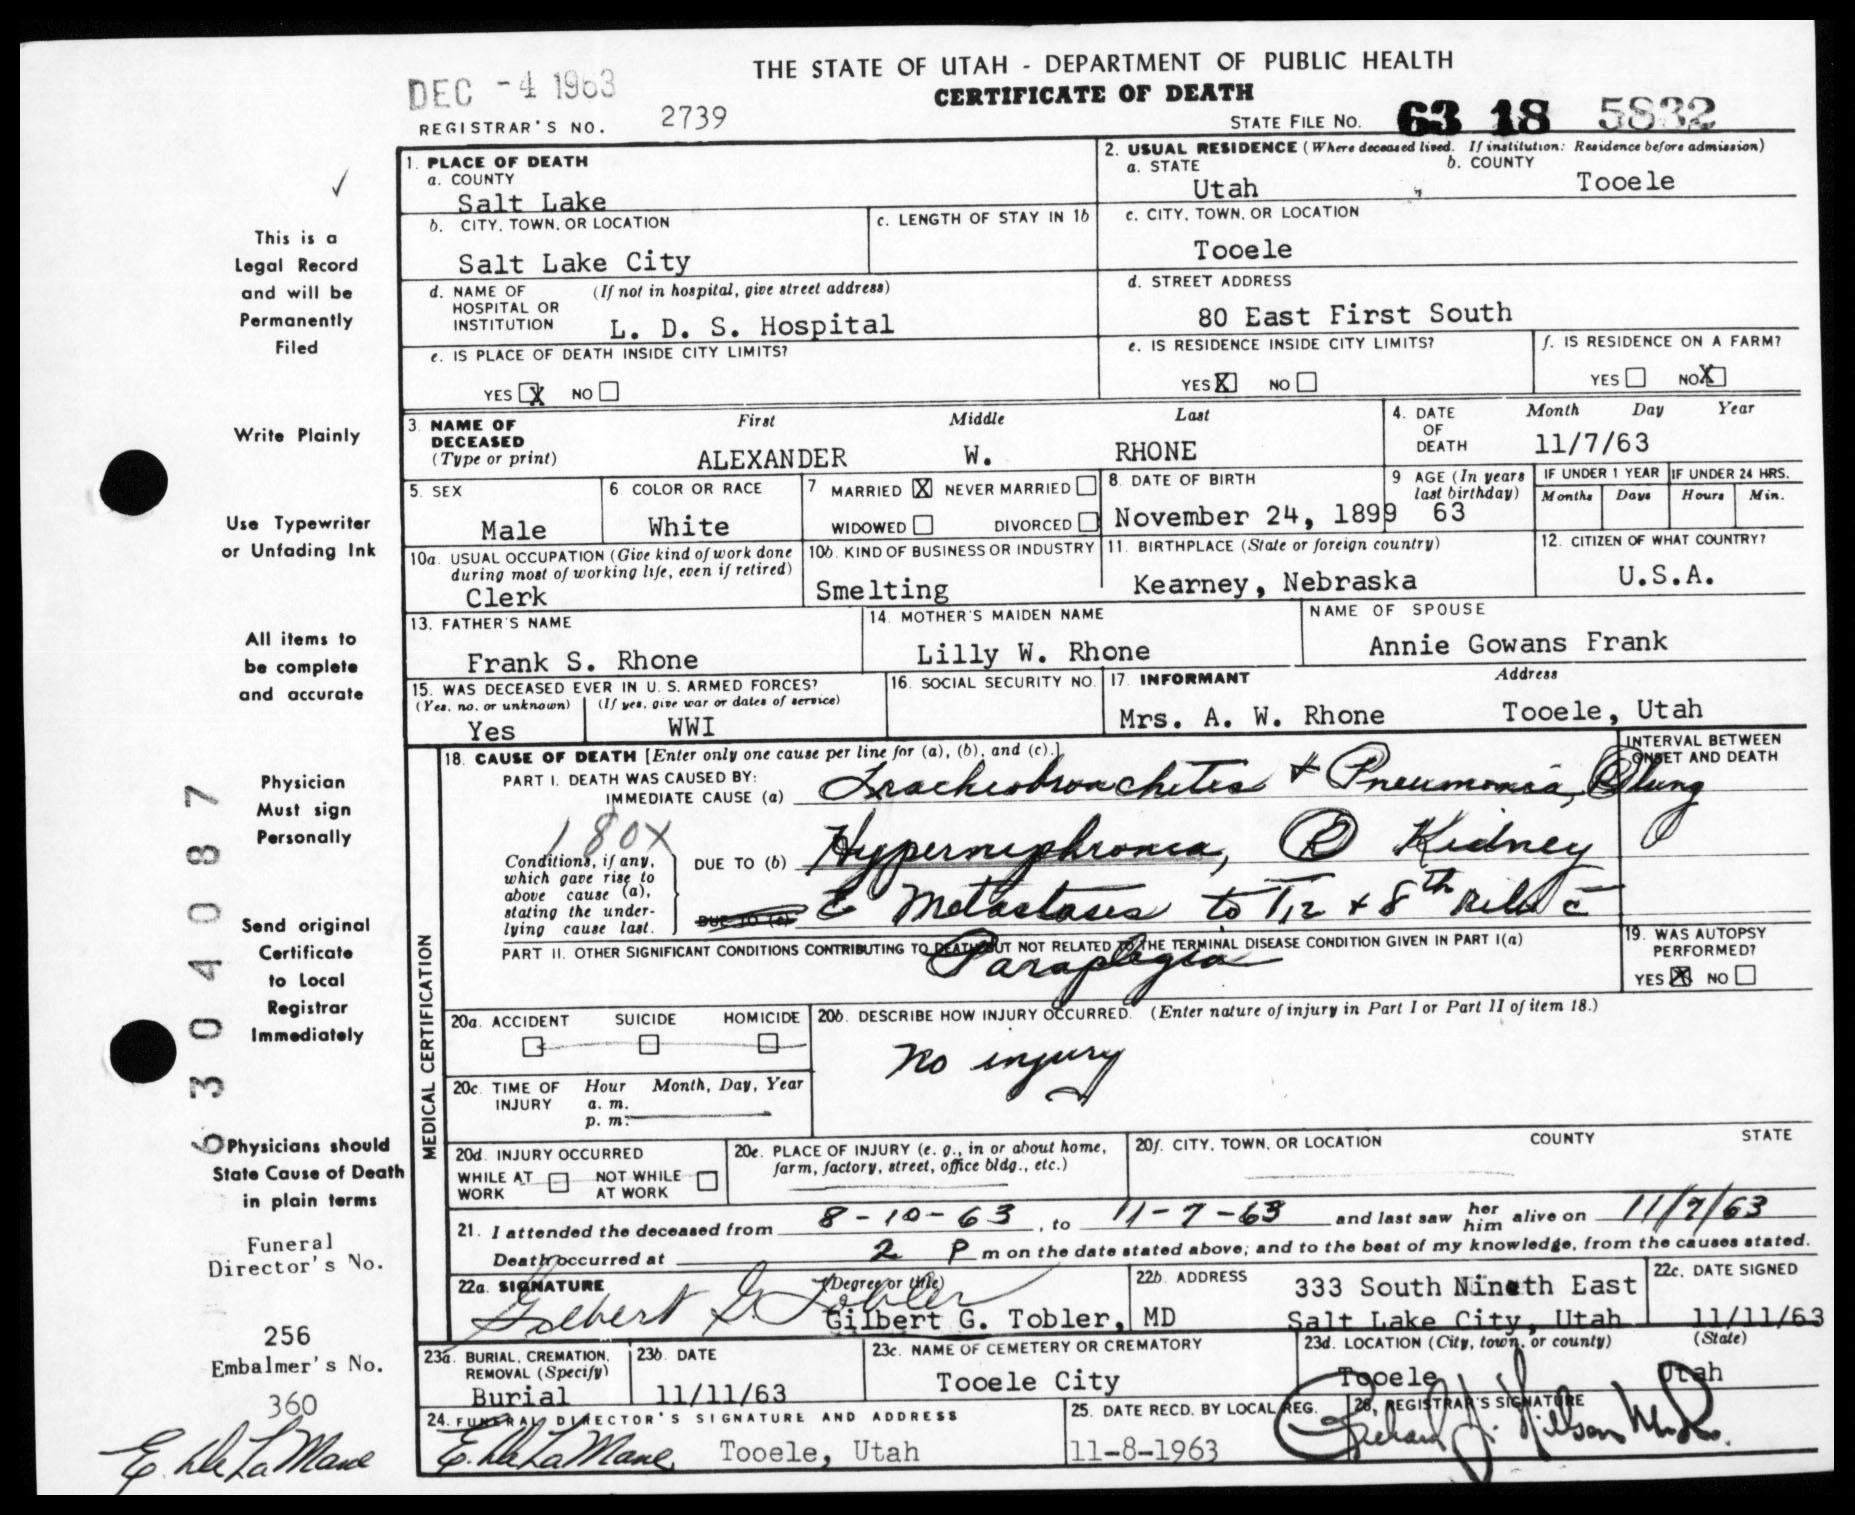 DEC -4 1963
THE STATE OF UTAH - DEPARTMENT OF PUBLIC HEALTH
CERTIFICATE OF DEATH
REGISTRAR'S NO. 2739
STATE FILE NO. 63 18 5832
This is a
Legal Record
and will be
Permanently
Filed
Write Plainly
Use Typewriter
or Unfading Ink
All items to
be complete
and accurate
Physician
Must sign
Personally
Send original
Certificate
to Local
Registrar
Immediately
Physicians should
State Cause of Death
in plain terms
Funeral
Director's No.
256
Embalmer's No.
360
E. DeLaMare
6304087
1. PLACE OF DEATH
a. COUNTY
Salt Lake
b. CITY, TOWN, OR LOCATION
Salt Lake City
c. LENGTH OF STAY IN 1b
d. NAME OF HOSPITAL OR INSTITUTION (If not in hospital, give street address)
L. D. S. Hospital
e. IS PLACE OF DEATH INSIDE CITY LIMITS?
YES X NO
2. USUAL RESIDENCE (Where deceased lived. If institution: Residence before admission)
a. STATE
Utah
b. COUNTY
Tooele
c. CITY, TOWN, OR LOCATION
Tooele
d. STREET ADDRESS
80 East First South
e. IS RESIDENCE INSIDE CITY LIMITS?
YES X NO
f. IS RESIDENCE ON A FARM?
YES NO X
3. NAME OF DECEASED (Type or print)
First Middle Last
ALEXANDER W. RHONE
4. DATE OF DEATH
Month Day Year
11/7/63
5. SEX
Male
6. COLOR OR RACE
White
7. MARRIED X NEVER MARRIED
WIDOWED DIVORCED
8. DATE OF BIRTH
November 24, 1899
9. AGE (In years last birthday)
63
IF UNDER 1 YEAR
Months Days
IF UNDER 24 HRS.
Hours Min.
10a. USUAL OCCUPATION (Give kind of work done during most of working life, even if retired)
Clerk
10b. KIND OF BUSINESS OR INDUSTRY
Smelting
11. BIRTHPLACE (State or foreign country)
Kearney, Nebraska
12. CITIZEN OF WHAT COUNTRY?
U.S.A.
13. FATHER'S NAME
Frank S. Rhone
14. MOTHER'S MAIDEN NAME
Lilly W. Rhone
NAME OF SPOUSE
Annie Gowans Frank
15. WAS DECEASED EVER IN U. S. ARMED FORCES?
(Yes, no, or unknown) (If yes, give war or dates of service)
Yes WWI
16. SOCIAL SECURITY NO.
17. INFORMANT Address
Mrs. A. W. Rhone Tooele, Utah
MEDICAL CERTIFICATION
18. CAUSE OF DEATH [Enter only one cause per line for (a), (b), and (c).]
INTERVAL BETWEEN ONSET AND DEATH
PART I. DEATH WAS CAUSED BY:
IMMEDIATE CAUSE (a) Tracheobronchitis + Pneumonia, R lung
180X
Conditions, if any, which gave rise to above cause (a), stating the underlying cause last.
DUE TO (b) Hypernephroma, R Kidney
DUE TO (c) c Metastases to T12 + 8th Rib c
Paraplegia
PART II. OTHER SIGNIFICANT CONDITIONS CONTRIBUTING TO DEATH BUT NOT RELATED TO THE TERMINAL DISEASE CONDITION GIVEN IN PART I(a)
19. WAS AUTOPSY PERFORMED?
YES X NO
20a. ACCIDENT SUICIDE HOMICIDE
20b. DESCRIBE HOW INJURY OCCURRED. (Enter nature of injury in Part I or Part II of item 18.)
No injury
20c. TIME OF INJURY Hour Month, Day, Year
a. m.
p. m.
20d. INJURY OCCURRED
WHILE AT WORK NOT WHILE AT WORK
20e. PLACE OF INJURY (e. g., in or about home, farm, factory, street, office bldg., etc.)
20f. CITY, TOWN, OR LOCATION COUNTY STATE
21. I attended the deceased from 8-10-63, to 11-7-63 and last saw her him alive on 11/7/63
Death occurred at 2 P m on the date stated above; and to the best of my knowledge, from the causes stated.
22a. SIGNATURE (Degree or title)
Gilbert G Tobler
Gilbert G. Tobler, MD
22b. ADDRESS
333 South Nineth East
Salt Lake City, Utah
22c. DATE SIGNED
11/11/63
23a. BURIAL, CREMATION, REMOVAL (Specify)
Burial
23b. DATE
11/11/63
23c. NAME OF CEMETERY OR CREMATORY
Tooele City
23d. LOCATION (City, town, or county) (State)
Tooele Utah
24. FUNERAL DIRECTOR'S SIGNATURE AND ADDRESS
E. DeLaMare Tooele, Utah
25. DATE RECD. BY LOCAL REG.
11-8-1963
26. REGISTRAR'S SIGNATURE